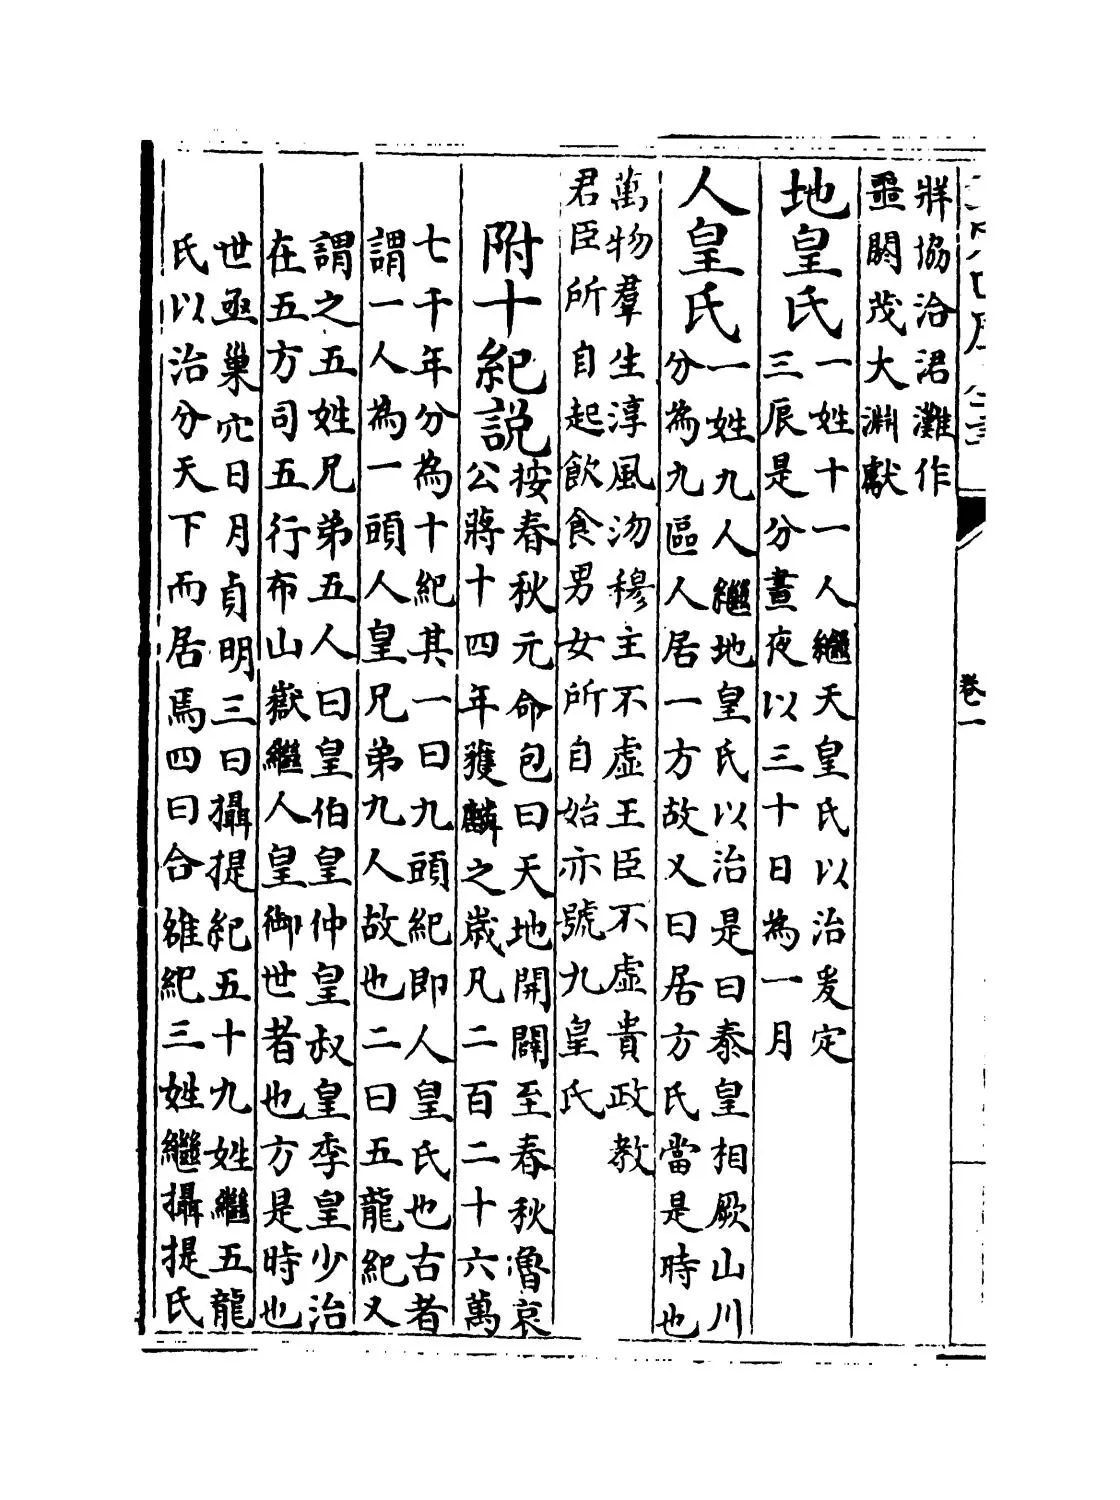 牂協洽涒灘作
噩閼茂大淵獻
地皇氏
一姓十一人繼天皇氏以治爰定
三辰是分晝夜以三十日為一月
人皇氏
一姓九人繼地皇氏以治是曰泰皇相厥山川
分為九區人居一方故又曰居方氏當是時也
萬物羣生淳風沕穆主不虛王臣不虛貴政教
君臣所自起飲食男女所自始亦號九皇氏
附十紀説
按春秋元命包曰天地開闢至春秋魯哀
公蔣十四年獲麟之歲凡二百二十六萬
七千年分為十紀其一曰九頭紀即人皇氏也古者
謂一人為一頭人皇兄弟九人故也二曰五龍紀又
謂之五姓兄弟五人曰皇伯皇仲皇叔皇季皇少治
在五方司五行布山嶽繼人皇御世者也方是時也
世亟巢穴日月貞明三曰攝提紀五十九姓繼五龍
氏以治分天下而居焉四曰合雒紀三姓繼攝提氏
卷一